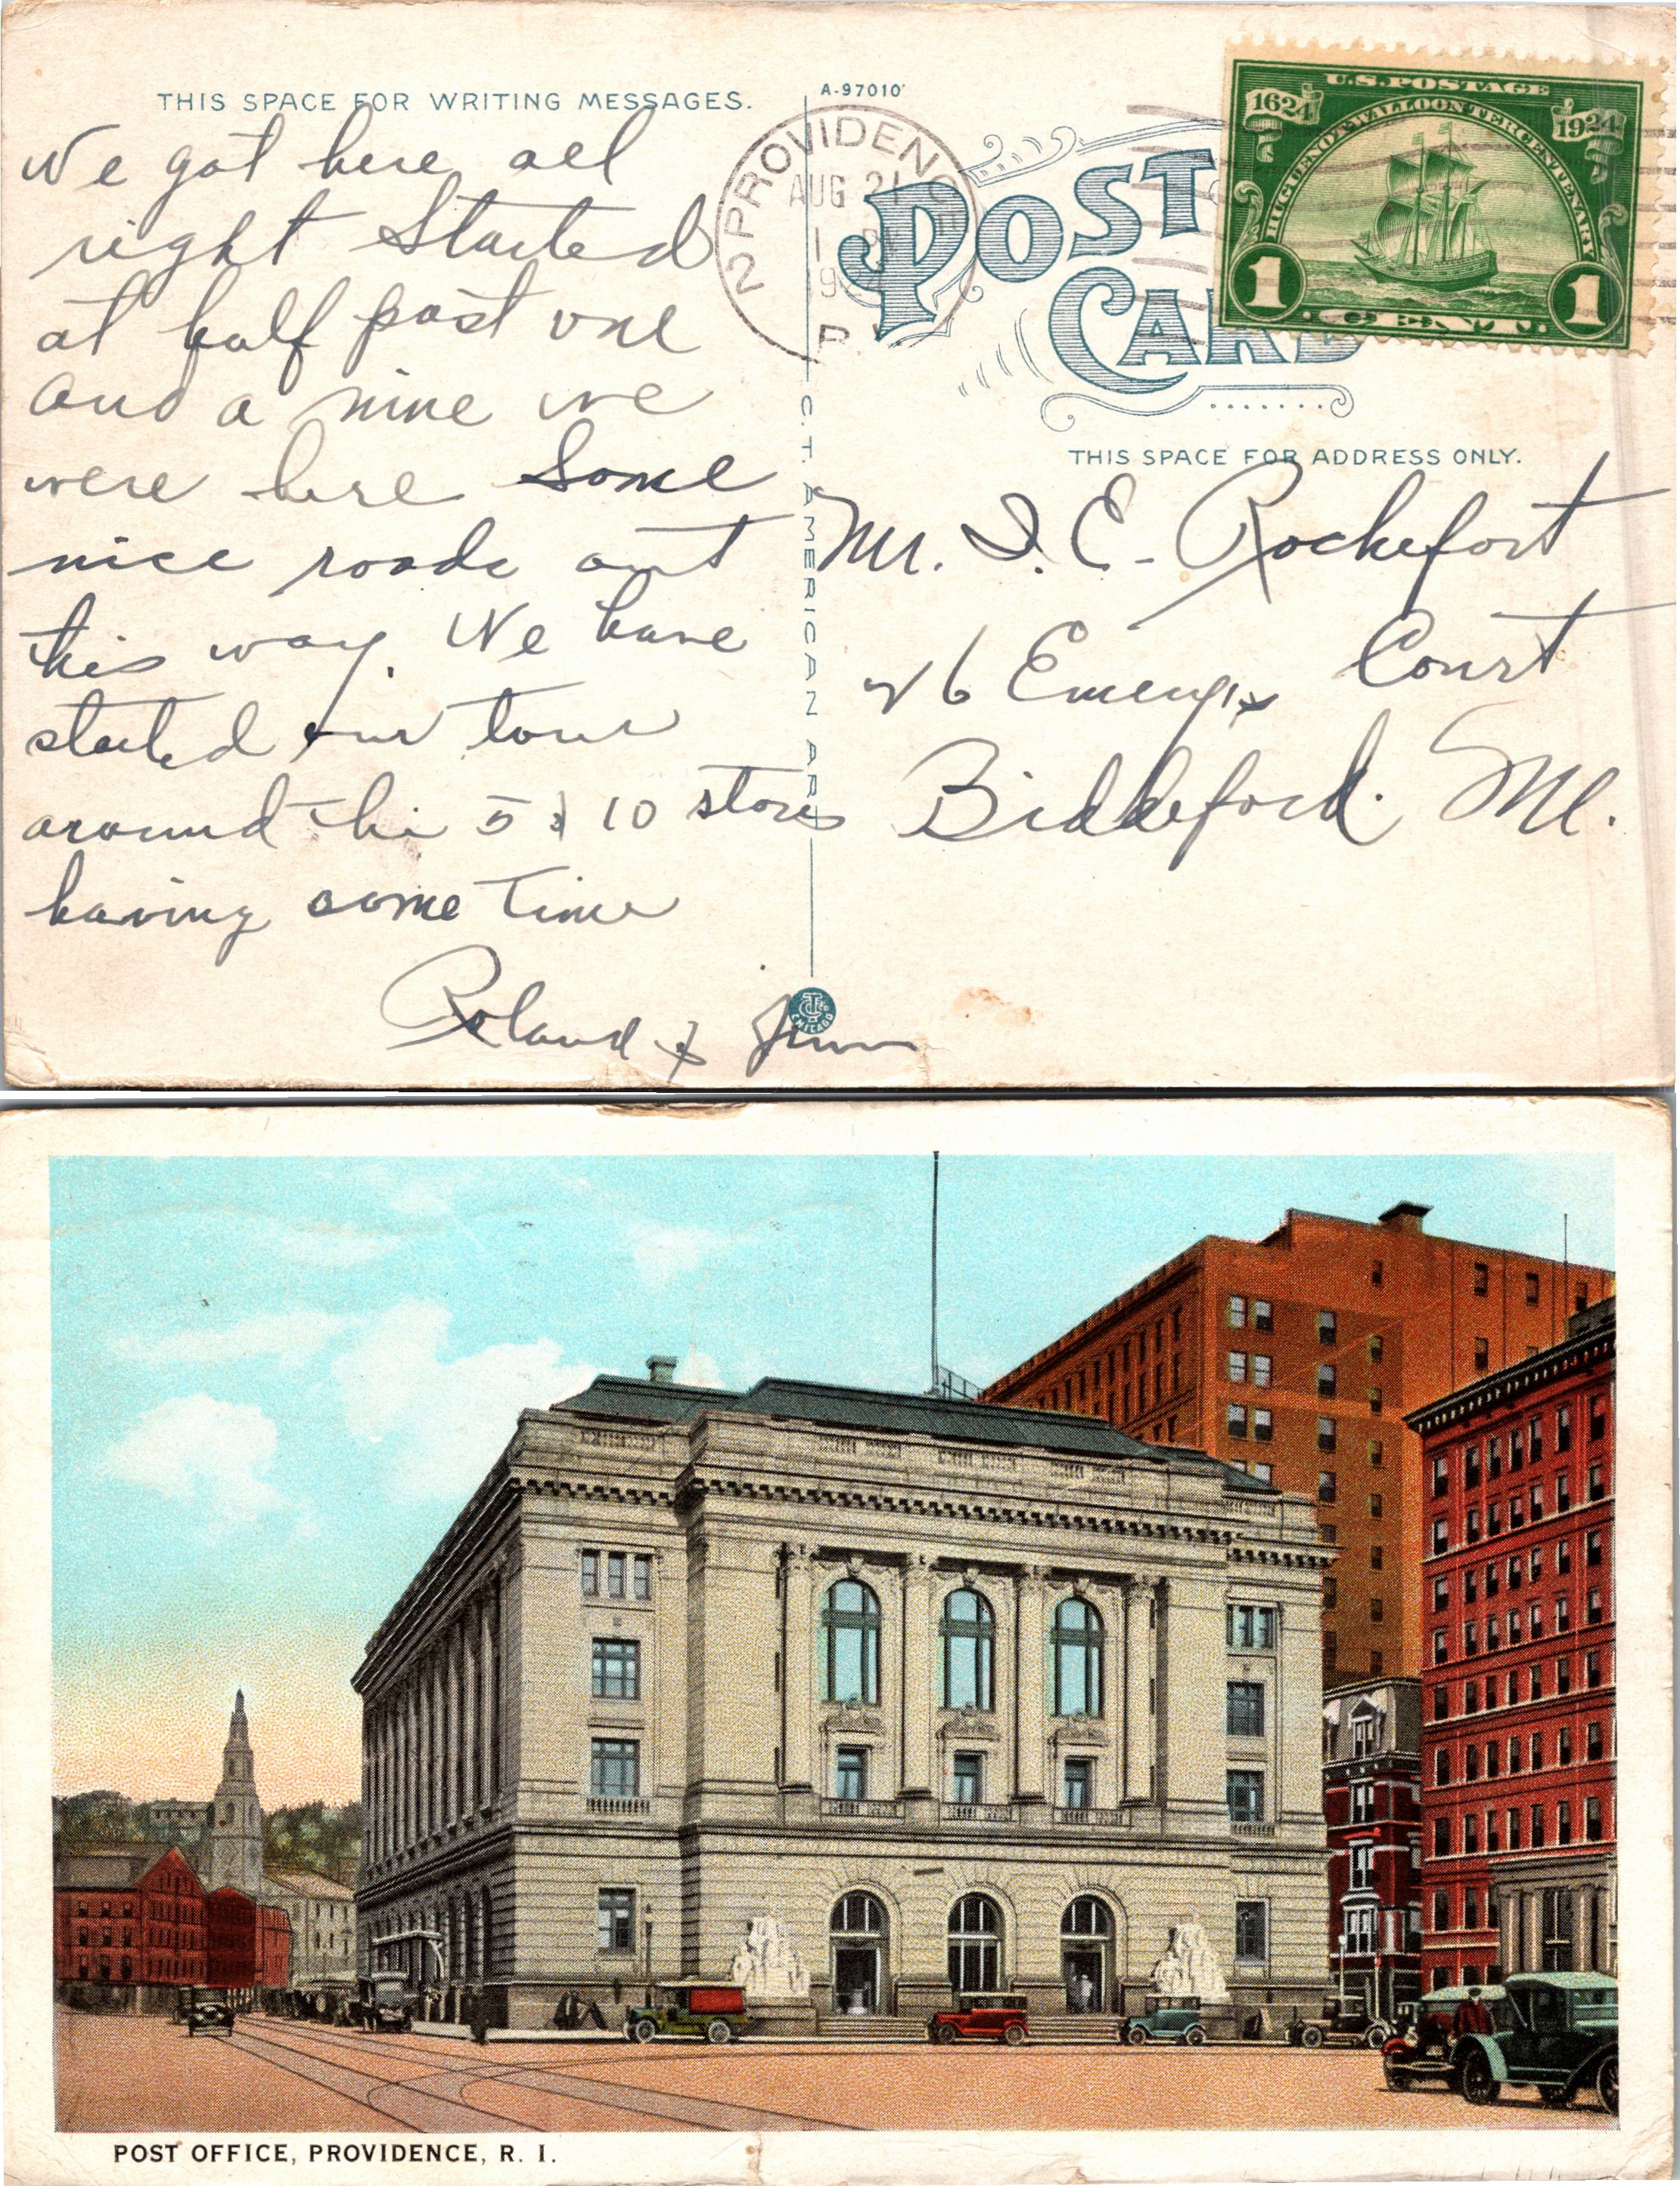 THIS SPACE FOR WRITING MESSAGES.
We got here all
right Started
at half past one
and a nine we
were here Some
nice roads out
this way. We have
started our tour
around the 5 & 10 stores
having some time
Roland &
A-97010
C.T. AMERICAN ART
CHICAGO
2 PROVIDENCE
AUG 21
1 PM
19
R.I.
POST
CARD
U.S. POSTAGE
1624 1924
HUGUENOT WALLOON TERCENTENARY
1 1
CENT
THIS SPACE FOR ADDRESS ONLY.
Mr. I. E. Rochefort
26 Emery Court
Biddeford. Me.
POST OFFICE, PROVIDENCE, R. I.